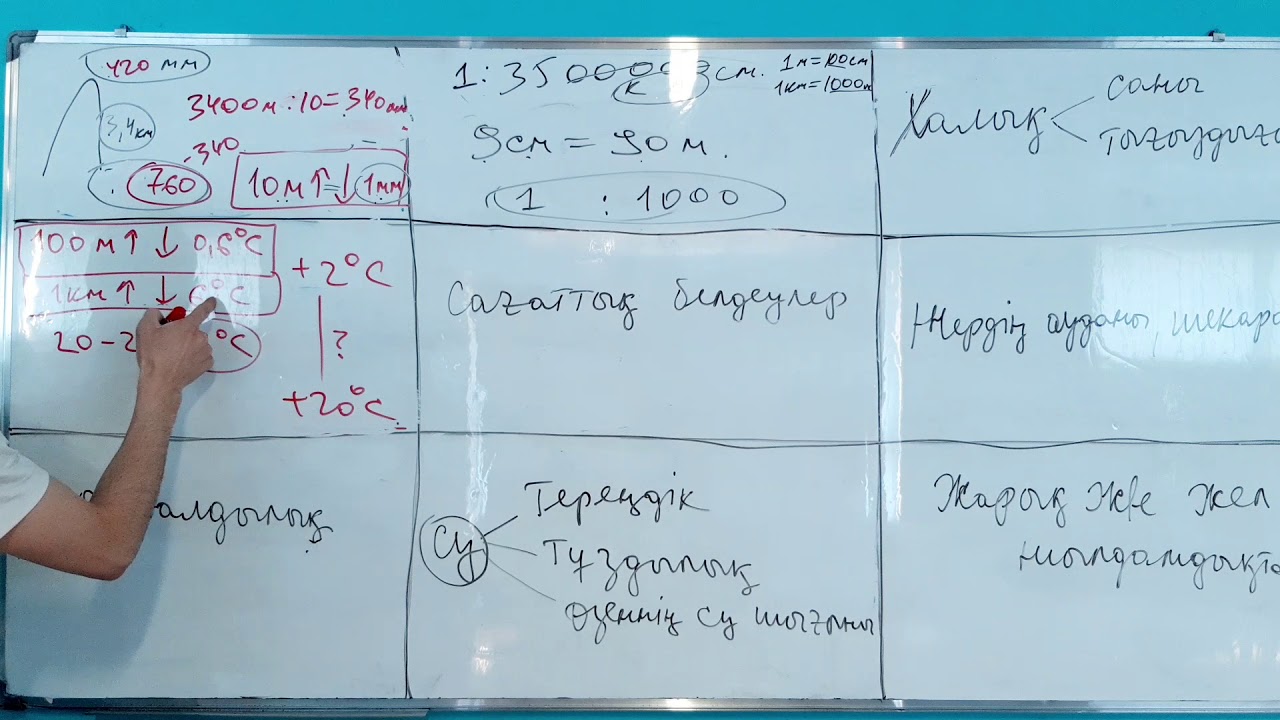 420 мм
3,4км
3400м:10=340мм
-340
760
10м↑=↓1мм
1:35000
см.
1м=100см
1км=1000м
к
9см=90м.
1 :1000
Халық
саны
тығыздығы
100м↑ ↓ 0,6°C
1км↑ ↓ 6°C
20-2
°C
+2°C
?
+20°C
Сағаттық белдеулер
Жердің ауданы, шекара
Су
Тереңдік
Тұздылық
өзеннің су шығыны
Жарық және жел
жылдамдықта